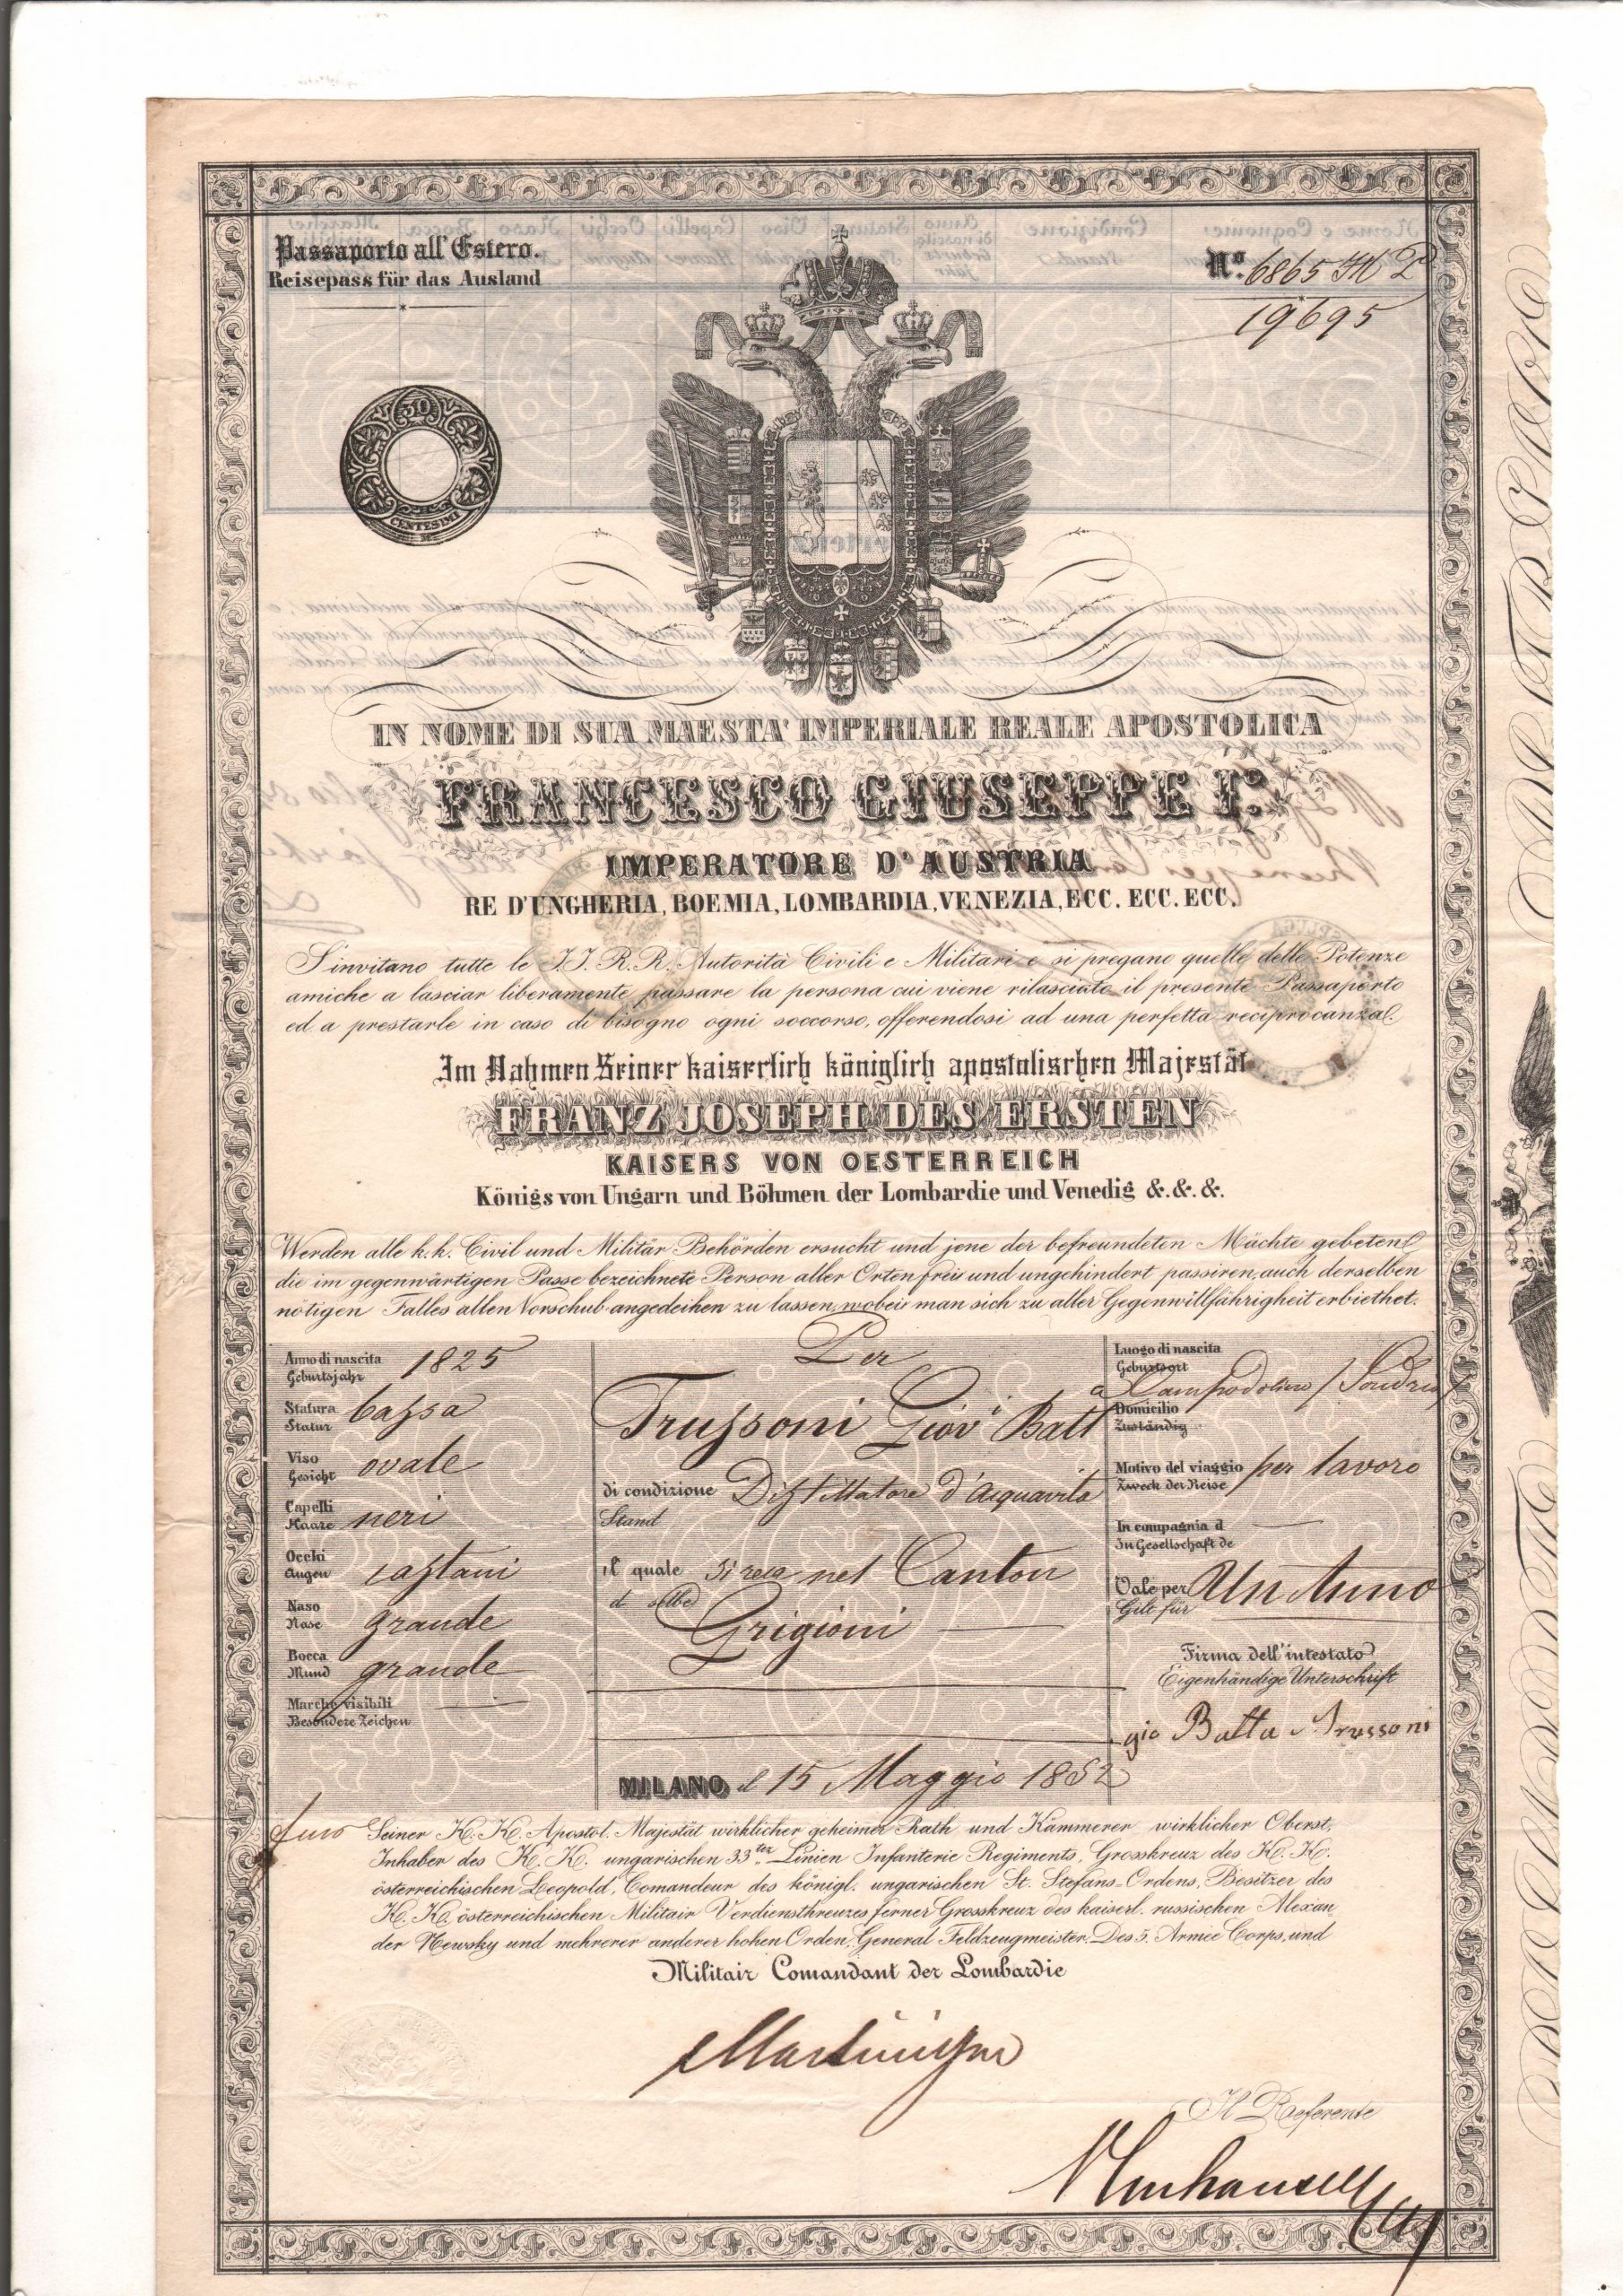 Passaporto all' Estero.
Reisepass für das Ausland
Nº. 6865
19695
30
CENTESIMI
IN NOME DI SUA MAESTA' IMPERIALE REALE APOSTOLICA
FRANCESCO GIUSEPPE Iº.
IMPERATORE D'AUSTRIA
RE D'UNGHERIA, BOEMIA, LOMBARDIA, VENEZIA, ECC. ECC. ECC.
S'invitano tutte le I.I. R.R. Autorità Civili e Militari e si pregano quelle delle Potenze
amiche a lasciar liberamente passare la persona cui viene rilasciato il presente Passaporto
ed a prestarle in caso di bisogno ogni soccorso, offerendosi ad una perfetta reciprocanza.
Im Nahmen Seiner kaiserlich königlich apostolischen Majestät
FRANZ JOSEPH DES ERSTEN
KAISERS VON OESTERREICH
Königs von Ungarn und Böhmen der Lombardie und Venedig &. &. &.
Werden alle k. k. Civil und Militär Behörden ersucht und jene der befreundeten Mächte gebeten
die im gegenwärtigen Passe bezeichnete Person aller Orten frei und ungehindert passiren, auch derselben
nötigen Falles allen Vorschub angedeihen zu lassen, wobei man sich zu aller Gegenwillfährigheit erbiethet.
Anno di nascita 1825
Geburtsjahr
Statura bassa
Statur
Viso ovale
Gesicht
Capelli neri
Haare
Occhi castani
Augen
Naso grande
Nase
Bocca grande
Mund
Marche visibili
Besondere Zeichen
Per
Trussoni Giov Batt
di condizione Distillatore d'acquavita
Stand
il quale si reca nel Canton
d selbe
Grigioni
MILANO il 15 Maggio 1852
Luogo di nascita
Geburtsort
a Campodolcino / Sondrio
Domicilio
Zuständig
Motivo del viaggio per lavoro
Zweck der Reise
In compagnia d
In Gesellschaft de
Vale per Un Anno
Gilt für
Firma dell'intestato
Eigenhändige Unterschrift
gio Batta Trussoni
Seiner K. K. Apostol. Majestät wirklicher geheimer Rath und Kämmerer wirklicher Oberst,
Inhaber des K. K. ungarischen 33ten Linien Infanterie Regiments, Grosskreuz des K. K.
österreichischen Leopold, Comandeur des königl. ungarischen St. Stefans-Ordens, Besitzer des
K. K. österreichischen Militair Verdienstkreuzes ferner Grosskreuz des kaiserl. russischen Alexan
der Newsky und mehrerer anderer hohen Orden, General Feldzeugmeister. Des 5. Armee Corps, und
Militair Comandant der Lombardie
Il Referente